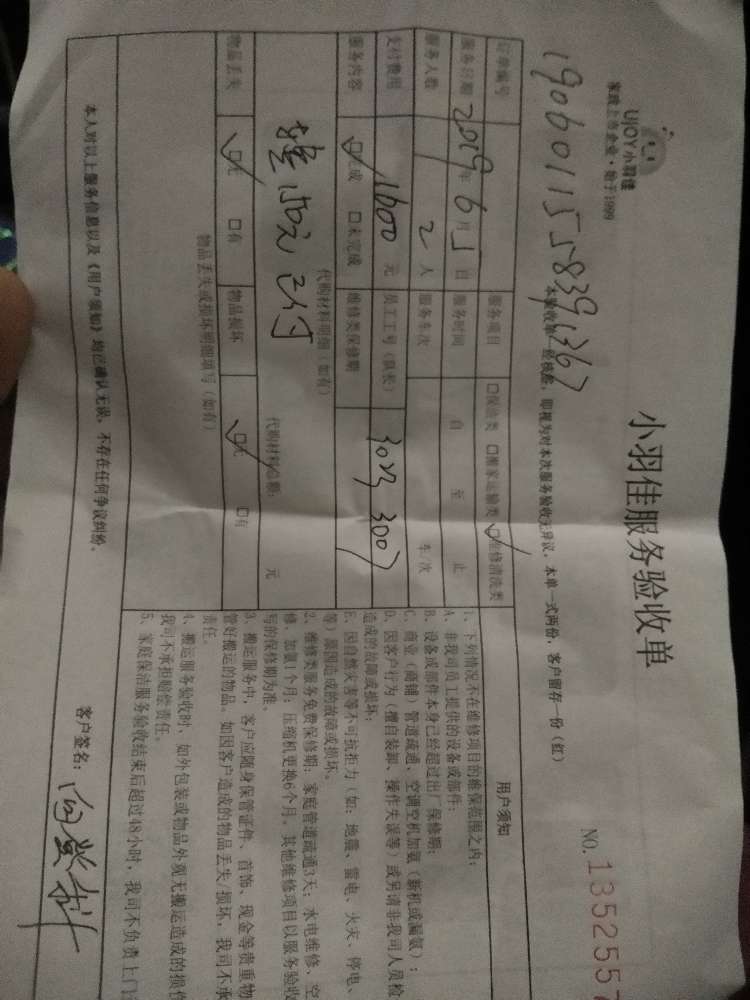 UJOY小羽佳
家政上市企业·始于1999
小羽佳服务验收单
NO.1352557
本验收单一经核签，即视为对本次服务验收无异议，本单一式两份，客户留存一份（红）
订单编号 1906011558391367
服务项目 □保洁类 □搬家运输类 □维修清洗类
服务日期 2019年6月 日 服务时间 自 至 止
服务人数 2人 服务车次 车/次
支付费用 1600元 员工工号（队长） 3023 3007
服务内容 □完成 □未完成 维修类保修期
代购材料明细（如有） 代购材料总额： 元
已付
物品丢失 □无 □有 物品损坏 □无 □有
物品丢失或损坏明细填写（如有）
本人对以上服务信息以及《用户须知》均已确认无误，不存在任何争议纠纷。
客户签名：
用户须知
1、下列情况不在维修项目的维保范围之内：
A、非我司员工提供的设备或部件；
B、设备或部件本身已经超过出厂保修期；
C、商业（商铺）管道疏通、空调空机加氨（新机或漏氨）；
D、因客户行为（擅自装卸、操作失误等）或另请非我司人员检
造成的故障或损坏；
E、因自然灾害等不可抗拒力（如：地震、雷电、火灾、停电、
等）原因造成的故障或损坏。
2、维修类服务免费保修期：家庭管道疏通3天；水电维修、空
修、加氨1个月；压缩机更换6个月，其他维修项目以服务验收
写的保修期为准。
3、搬运服务中，客户应随身保管证件、首饰、现金等贵重物
管好搬运的物品。如因客户造成的物品丢失/损坏，我司不承
责任。
4、搬运服务验收时，如外包装或物品外观无搬运造成的损伤
我司不承担赔偿责任。
5、家庭保洁服务验收结束后超过48小时，我司不负责上门